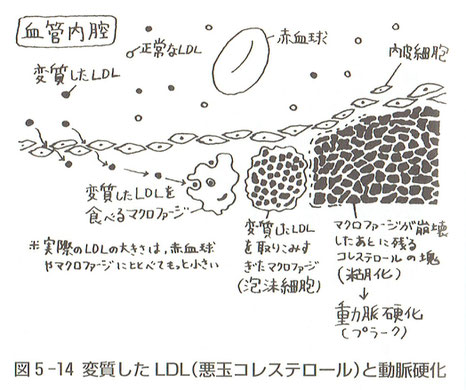 血管内腔
正常なLDL
赤血球
変質したLDL
内皮細胞
変質したLDLを
食べるマクロファージ
※実際のLDLの大きさは、赤血球
やマクロファージにくらべてもっと小さい
変質したLDL
を取りこみす
ぎたマクロファージ
(泡沫細胞)
マクロファージが崩壊
したあとに残る
コレステロールの塊
(粥状化)
動脈硬化
(プラーク)
図5-14 変質したLDL(悪玉コレステロール)と動脈硬化